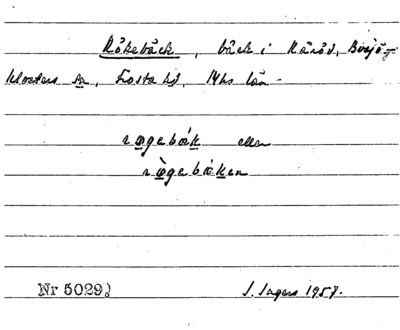 Råkebäck, bäck i Karöd, Bosjö=
klosters sn, Frosta hd, Mhs län.
rågebäk eller
rågebäken
Nr 5029.
S. Ingers 1957.